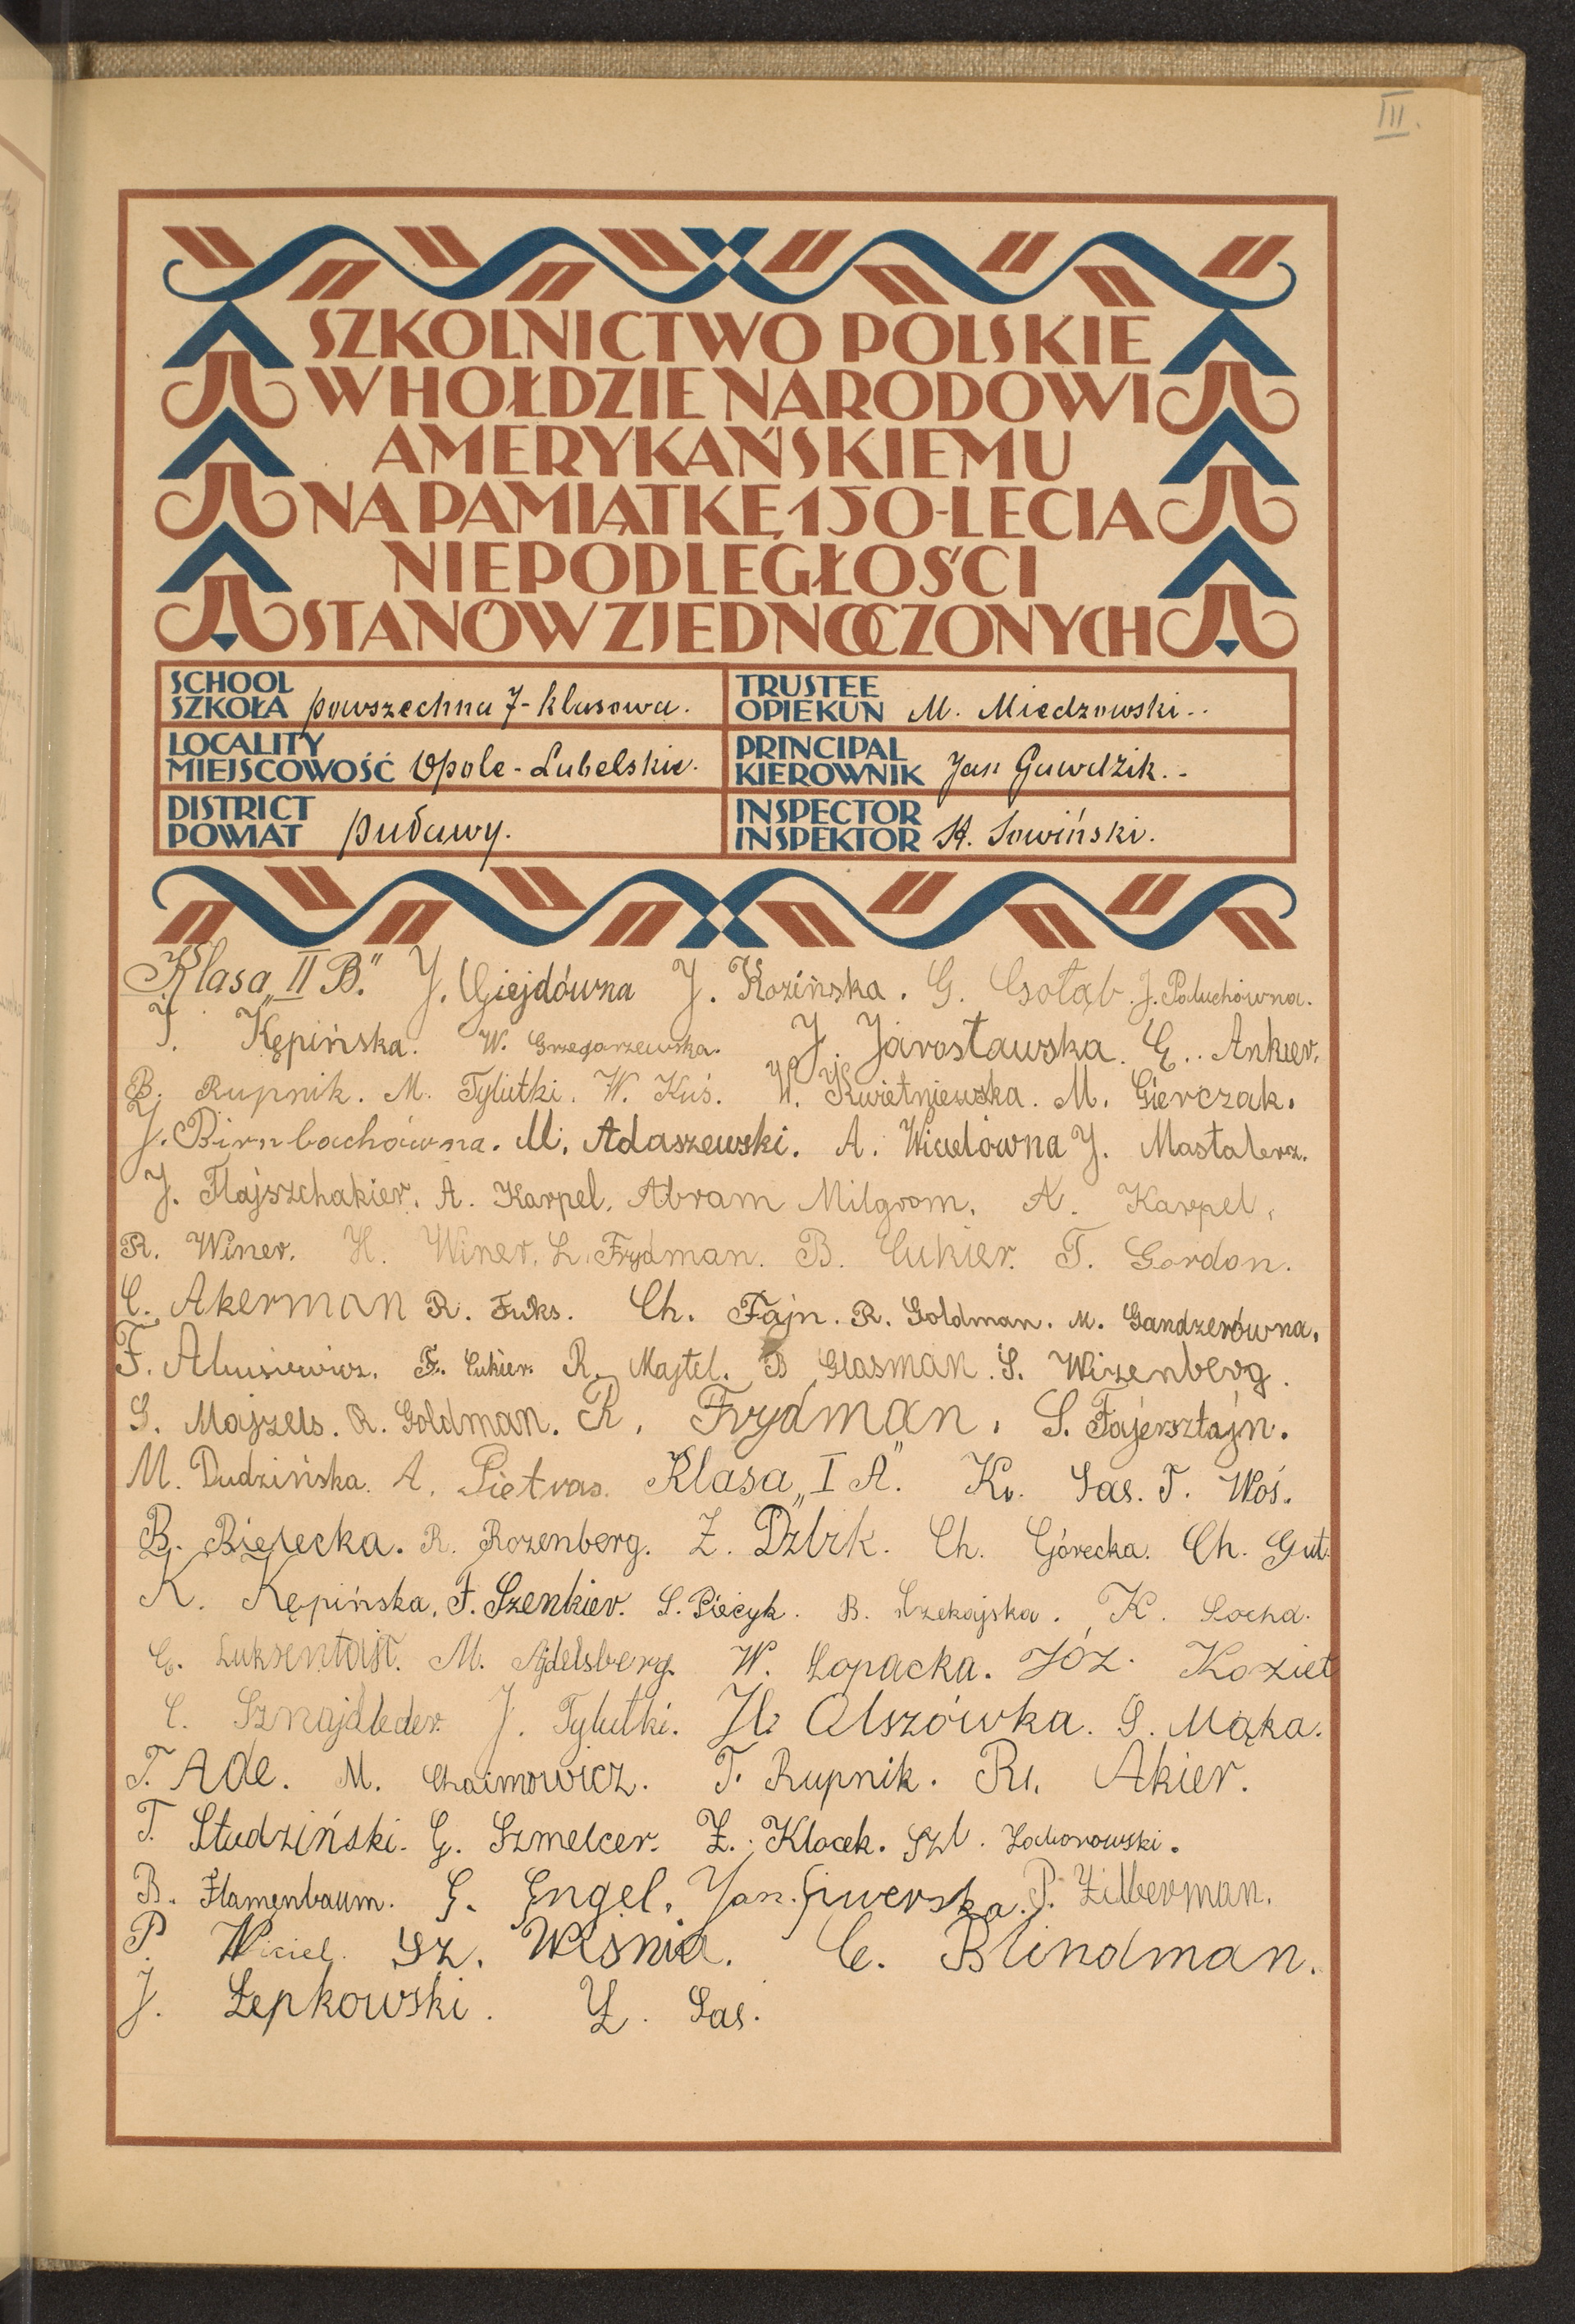 III.
SZKOLNICTWO POLSKIE
W HOŁDZIE NARODOWI
AMERYKAŃSKIEMU
NA PAMIĄTKĘ 150-LECIA
NIEPODLEGŁOŚCI
STANÓW ZJEDNOCZONYCH
SCHOOL
SZKOŁA powszechna 7-klasowa.
TRUSTEE
OPIEKUN M. Miedznowski..
LOCALITY
MIEJSCOWOŚĆ Opole-Lubelskie.
PRINCIPAL
KIEROWNIK Jan Gawdzik.-
DISTRICT
POWIAT puławy.
INSPECTOR
INSPEKTOR St. Sowiński.
Klasa „II B." J. Giejdówna J. Kozińska. G. Gołąb. J. Pałuchówna.
J. Kępińska. W. Grzegorzewska. J. Jarosławska. G.. Ankier.
B. Rupnik. M. Tylutki. W. Kuś. W. Kwietniewska. M. Gierczak.
J. Birnbachówna. M. Adaszewski. A. Wicelówna J. Mastalerz.
J. Flajszchakier. A. Karpel. Abram Milgrom. A. Karpel.
R. Winer. H. Winer. L. Frydman. B. Cukier. T. Gordon.
C. Akerman R. Fuks. Ch. Fajn. R. Goldman. M. Gandzerówna.
F. F. Cukier. R. Majtel. B Glasman. S. Wizenberg.
S. Majzels. R. Goldman. R. Frydman. S. Fajersztajn.
M. Dudzińska. A. Pietras. Klasa „I A." K. Sas. T. Woś.
B. Bielecka. R. Rozenberg. Z. Ch. Górecka. Ch. Gut.
K. Kępińska. F. Szenkier. S. Piecyk. B. K. Socha.
C. M. Ajdelsberg. W. Łopacka. Józ. Kozieł
C. Sznajdleder. J. Tylutki. H. Olszówka. S. Mąka.
T. Ade. M. Chaimowicz. T. Rupnik. R. Akier.
T. Studziński. G. Szmelcer. Z. Klocek. Szl.
B. Flamenbaum. G. Engel. Jan. Siwerska. P. Zilberman.
P. Wiciel. Sz. Wiśnia. C. Blindman.
J. Łepkowski. Z. Sas.